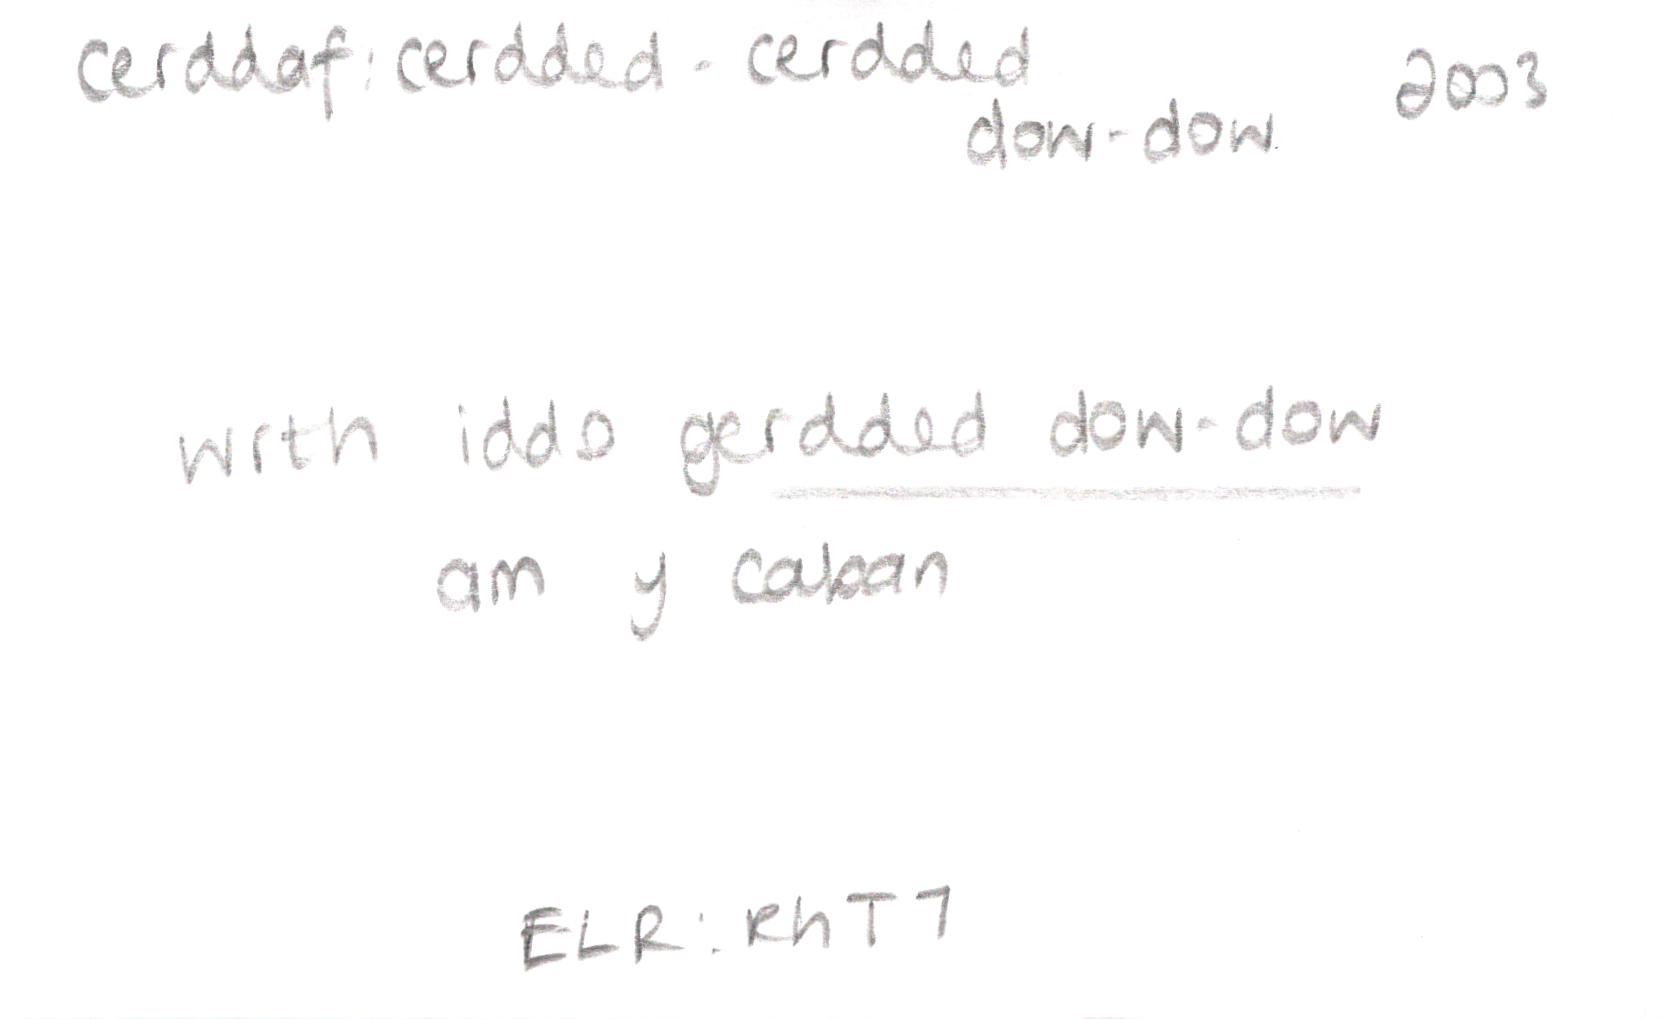 cerddaf: cerdded - cerdded 2003
dow-dow.
wrth iddo gerdded dow-dow
am y caban
ELR: RhT 7